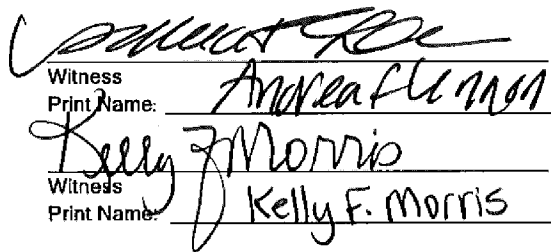 Witness
Print Name: Andrea
Kelly F Morris
Witness
Print Name: Kelly F. Morris